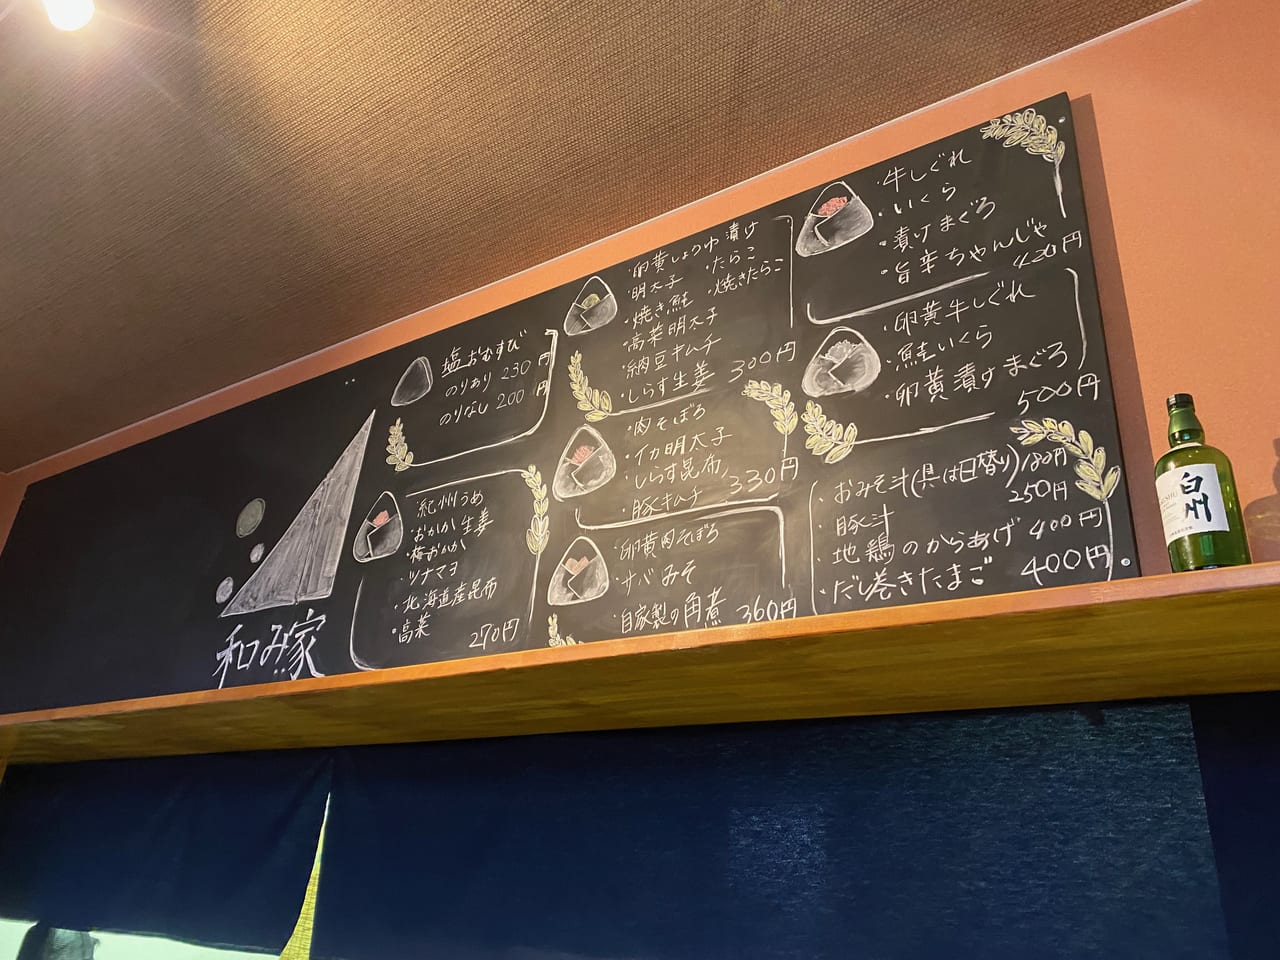 和み家
塩おむすび
のりあり 230円
のりなし 200円
・紀州うめ
・おかか生姜
・梅おかか
・ツナマヨ
・北海道産昆布
・高菜
270円
・卵黄しょうゆ漬け
・明太子 ・たらこ
・焼き鮭 ・焼きたらこ
・高菜明太子
・納豆キムチ
・しらす生姜 300円
・肉そぼろ
・イカ明太子
・しらす昆布
・豚キムチ 330円
・卵黄肉そぼろ
・サバみそ
・自家製の角煮 360円
・牛しぐれ
・いくら
・漬けまぐろ
・旨辛ちゃんじゃ
420円
・卵黄牛しぐれ
・鮭いくら
・卵黄漬けまぐろ
500円
・おみそ汁(具は日替り)120円
・豚汁 250円
・地鶏のからあげ 400円
・だし巻きたまご 400円
白州